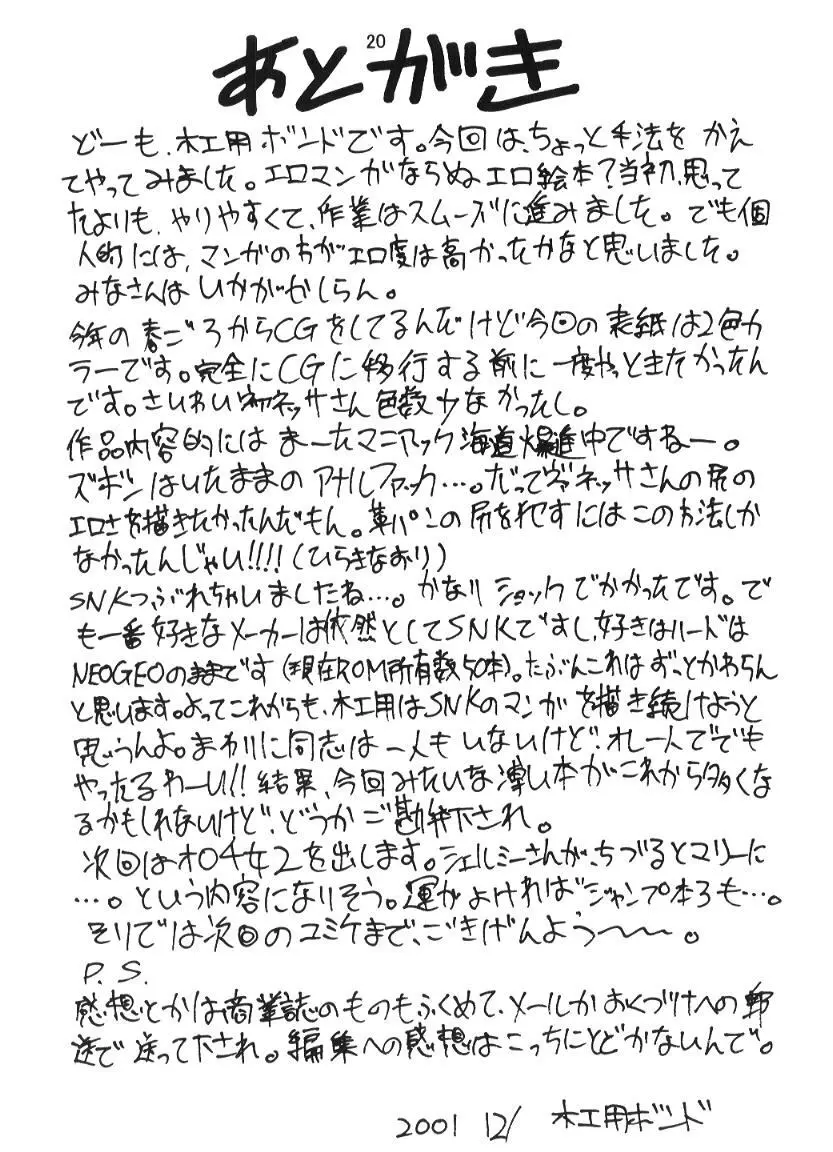 20
あとがき
どーも、木工用ボンドです。今回は、ちょっと手法をかえ
てやってみました。エロマンガならぬエロ絵本？当初、思って
たよりも、やりやすくて、作業はスムーズに進みました。でも個
人的には、マンガの方がエロ度は高かったかなと思いました。
みなさんはいかがかしらん。
今年の春ごろからCGをしてるんだけど今回の表紙は2色カ
ラーです。完全にCGに移行する前に一度やっときたかったん
です。さいわいヴァネッサさん色数少なかったし。
作品内容的にはまーたマニアック海道爆進中ですねー。
ズボンはいたままのアナルファック…。だってヴァネッサさんの尻の
エロさを描きたかったんだもん。革パンの尻を犯すにはこの方法しか
なかったんじゃい!!!!(ひらきなおり)
SNKつぶれちゃいましたね…。かなりショックでかかったです。で
も一番好きなメーカーは依然としてSNKですし、好きなハードは
NEOGEOのままです(現在ROM所有数50本)。たぶんこれはずっとかわらん
と思います。よってこれからも、木工用はSNKのマンガを描き続けようと
思うんよ。まわりに同志は一人もいないけど、オレ一人ででも
やったるわーい!!結果、今回みたいな薄い本がこれから多くな
るかもしれないけど、どうかご勘弁下され。
次回はオロチ女2を出します。シェルミーさんが、ちづるとマリーに
…。という内容になりそう。運がよければジャンプ本3も…。
そりでは次回のコミケまで、ごきげんよう〜〜。
P.S.
感想とかは商業誌のものもふくめて、メールかおくづけへの郵
送で送って下され。編集への感想はこっちにとどかないんで。
2001 12/ 木工用ボンド